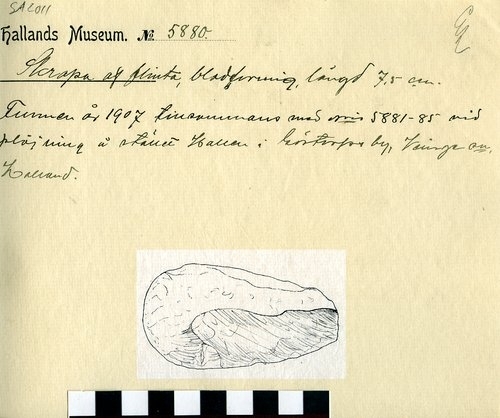 Hallands Museum. № 5880.
Skrapa af flinta, bladformig, längd 7,5 cm.
Funnen år 1907 tinsammans med n:ris 5881-85 vid
plöjning å stället Hallen i by, Veinge sn,
Halland.